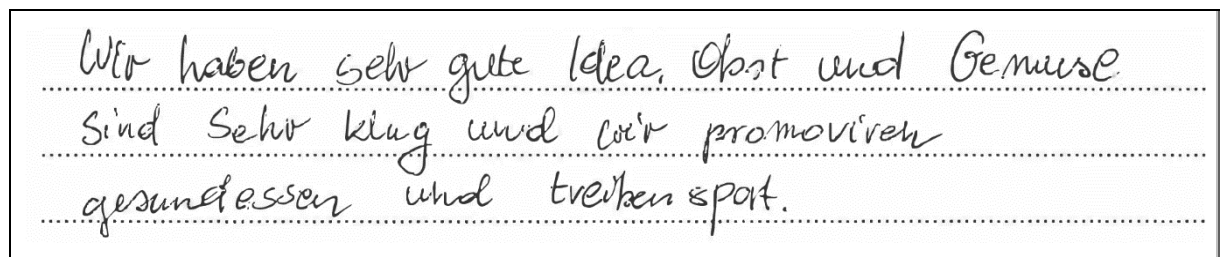 Wir haben sehr gute Idea. Obst und Gemuse
sind Sehr klug und wir promoviren
gesundessen und treiben sport.